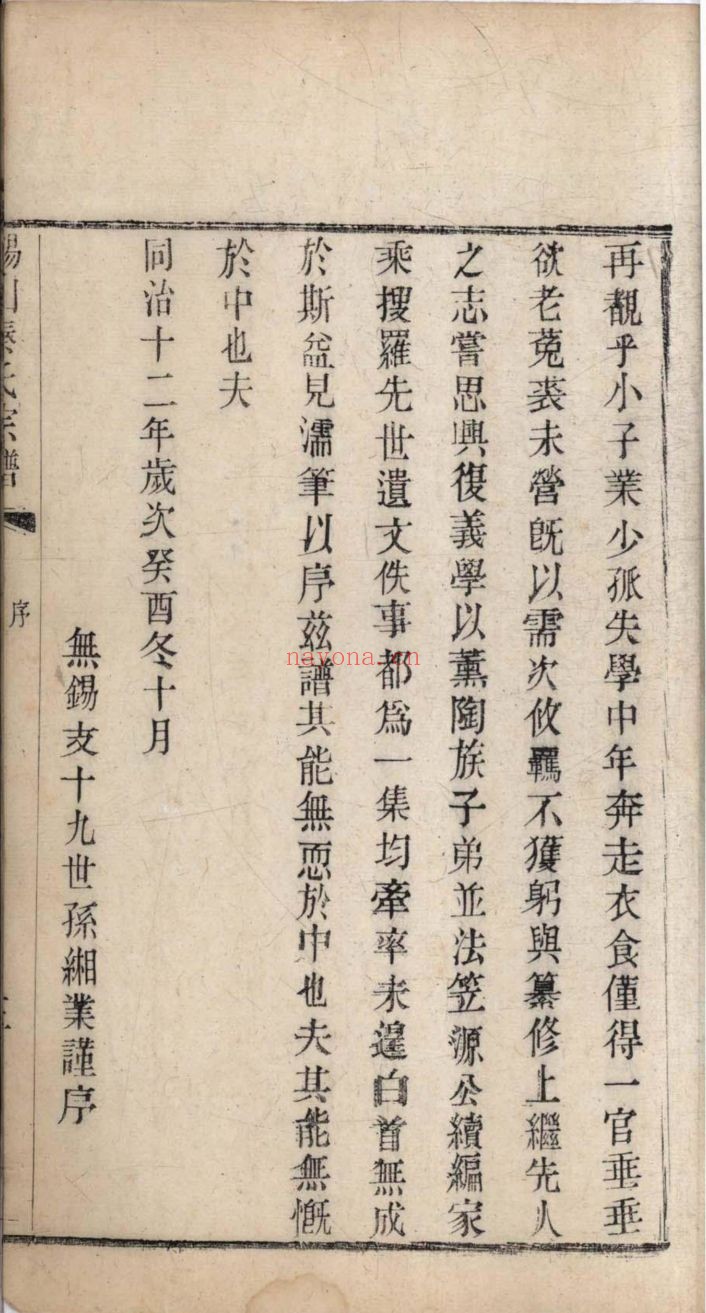 再覩乎小子業少孤失學中年奔走衣食僅得一官垂垂
欲老菟裘未營旣以需次攸羈不獲躬與纂修上繼先人
之志嘗思興復義學以薰陶族子弟並法笠源公續編家
乘搜羅先世遺文佚事都爲一集均牽率未遑白首無成
於斯益見濡筆以序茲譜其能無恧於中也夫其能無慨
於中也夫
同治十二年歲次癸酉冬十月
無錫支十九世孫緗業謹序
錫山秦氏宗譜
序
nayona.cn